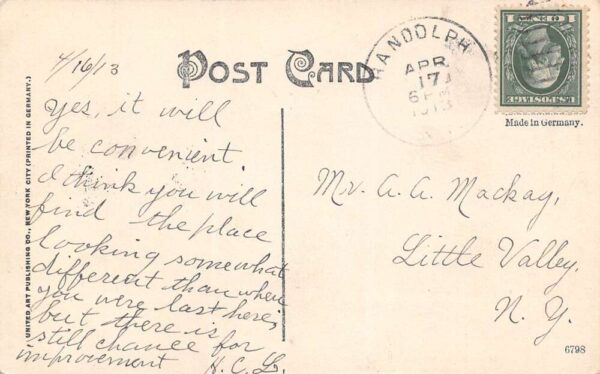 4/16/13
POST CARD
RANDOLPH
APR
17
6 PM
1913
1 CENT 1
U.S. POSTAGE
Made in Germany.
Yes, it will
be convenient.
I think you will
find the place
looking somewhat
different than when
you were last here;
but there is
still chance for
improvement H.C.L.
Mr. A. A. Mackay,
Little Valley,
N. Y.
UNITED ART PUBLISHING CO., NEW YORK CITY (PRINTED IN GERMANY.)
6798